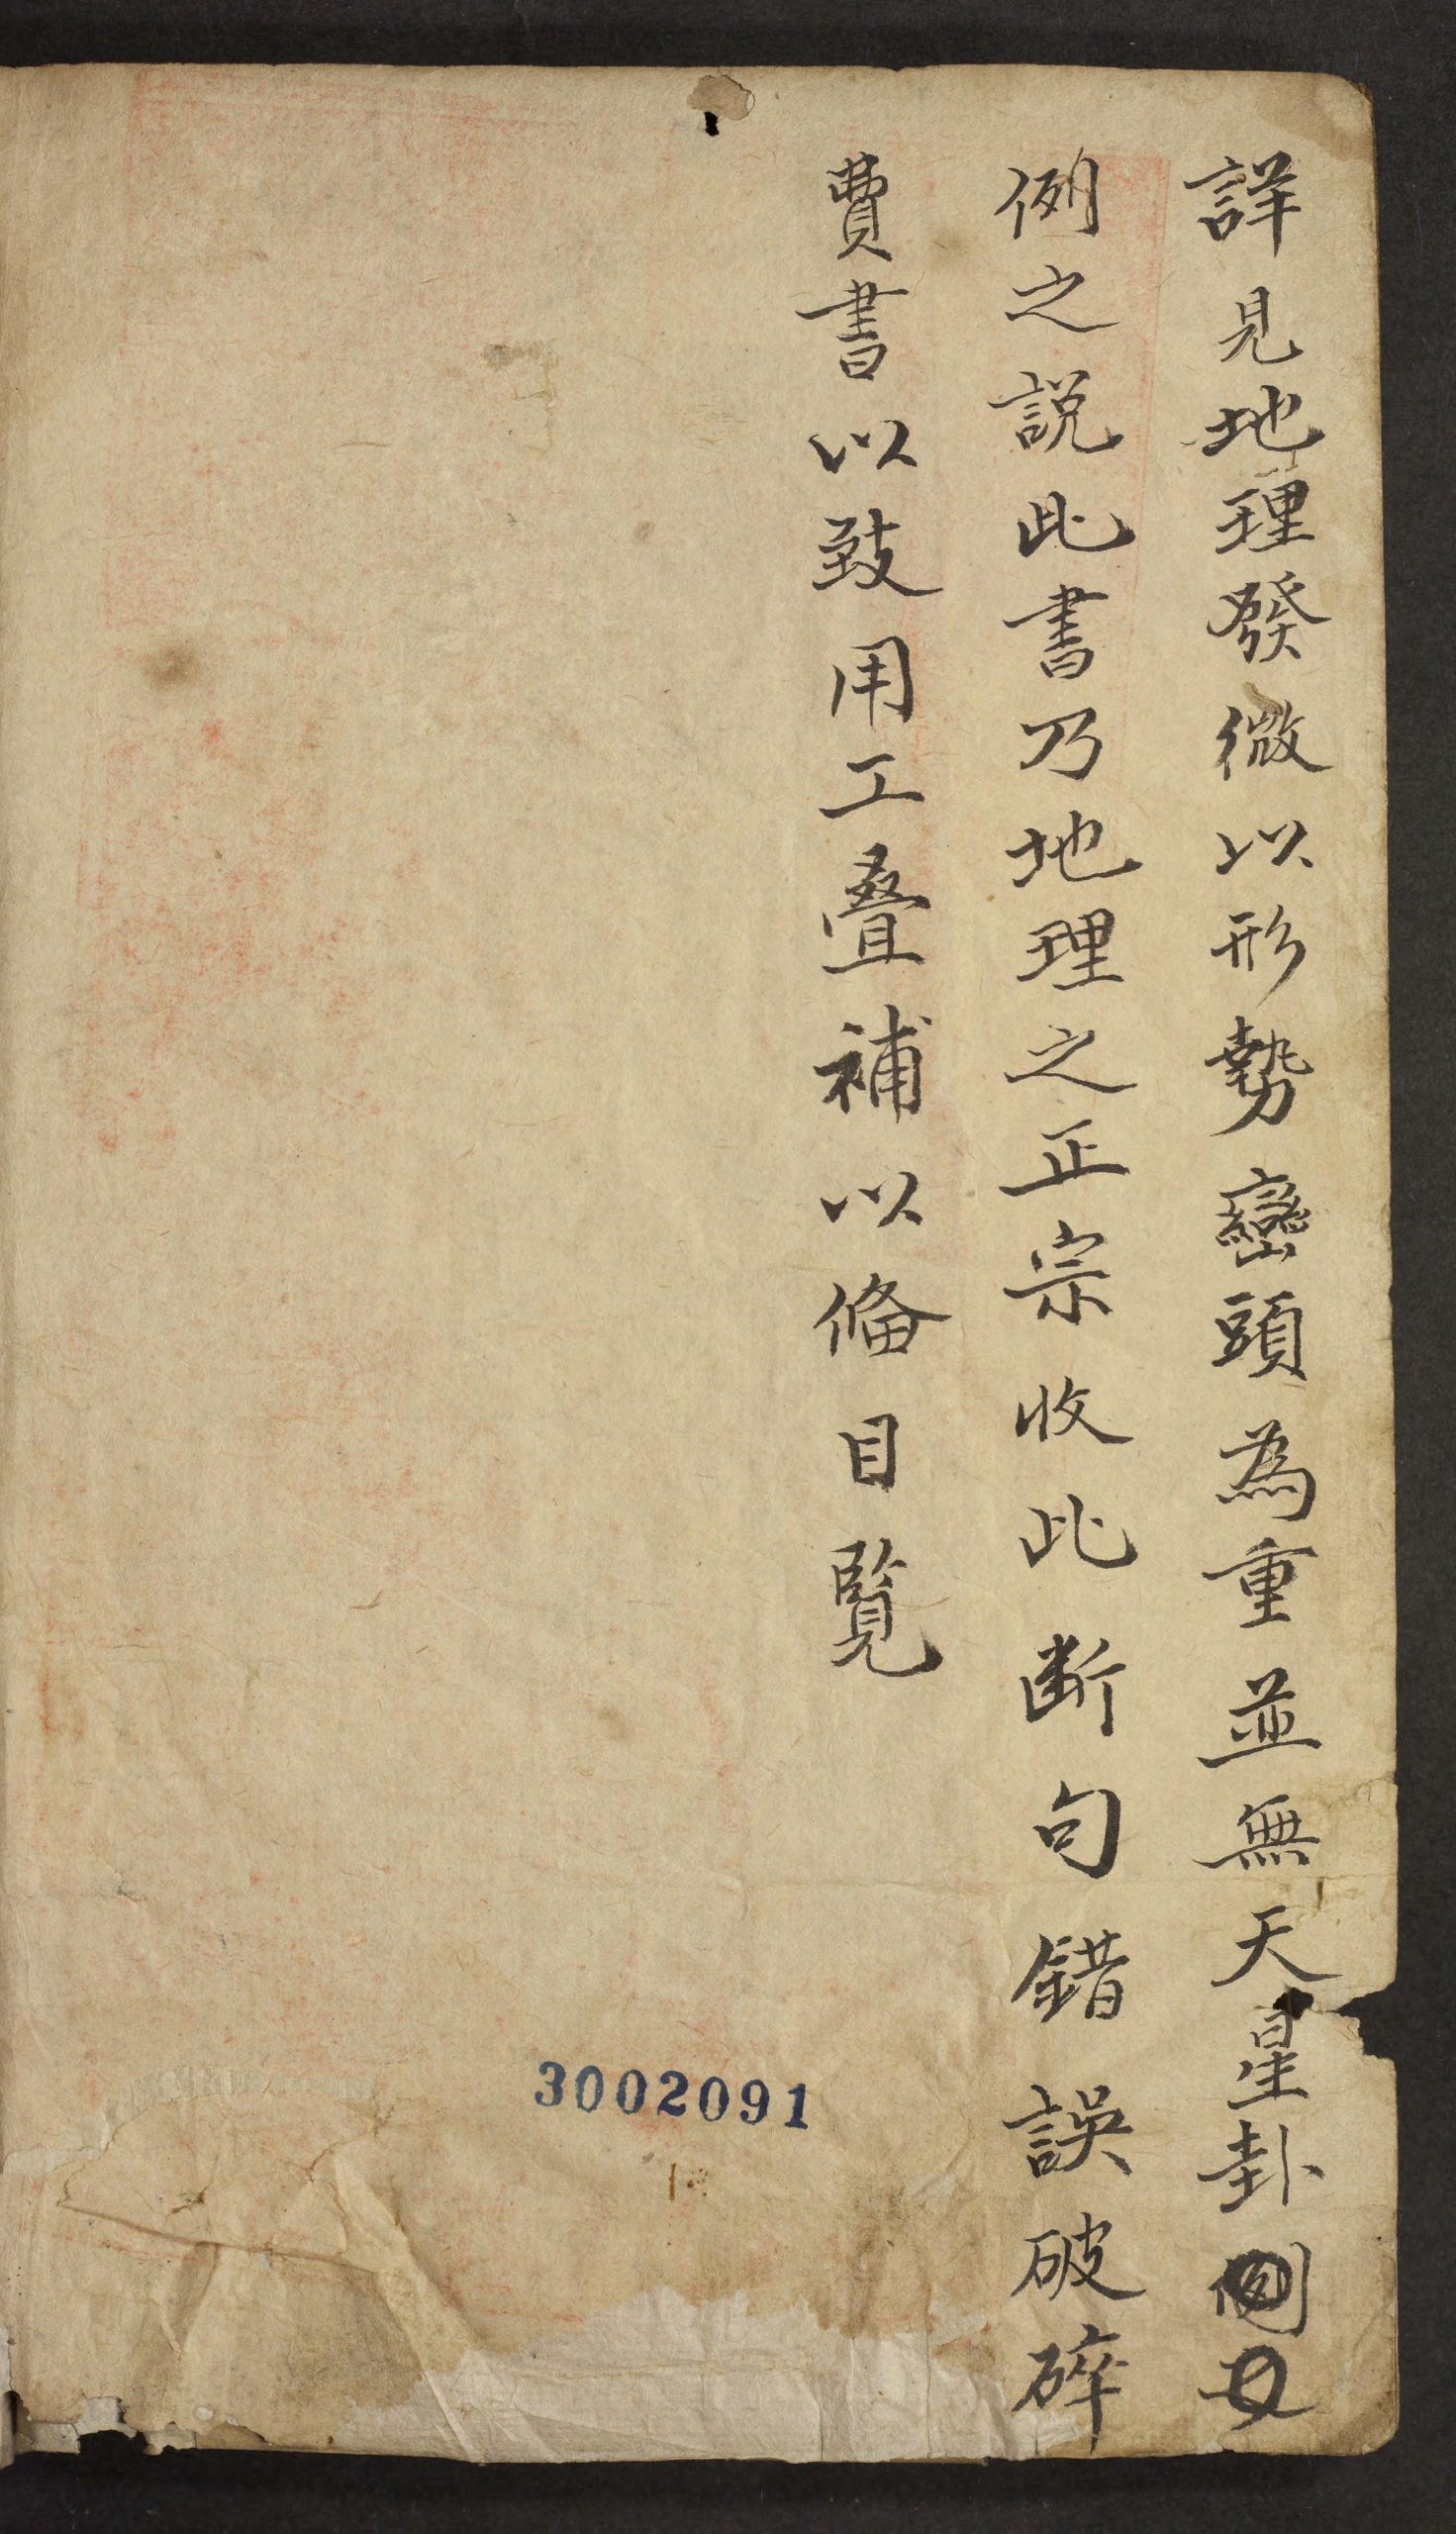 詳見地理發微以形勢巒頭為重並無天星卦例之
例之説此書乃地理之正宗收此断句錯誤破碎
費書以致用工叠補以俻目覽
3002091